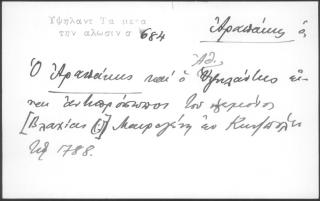 Υψηλαντ Τα μετα
την αλωσιν σ 684
Ἀραπάκης ὁ,
Ὁ Ἀραπάκης καὶ ὁ Ἀθ. Ὑψηλάντης εἶ-
ναι ἀντιπρόσωποι τοῦ ἡγεμόνος
[Βλαχίας (;)] Μαυρογένη ἐν Κων)πόλει
τῷ 1788.